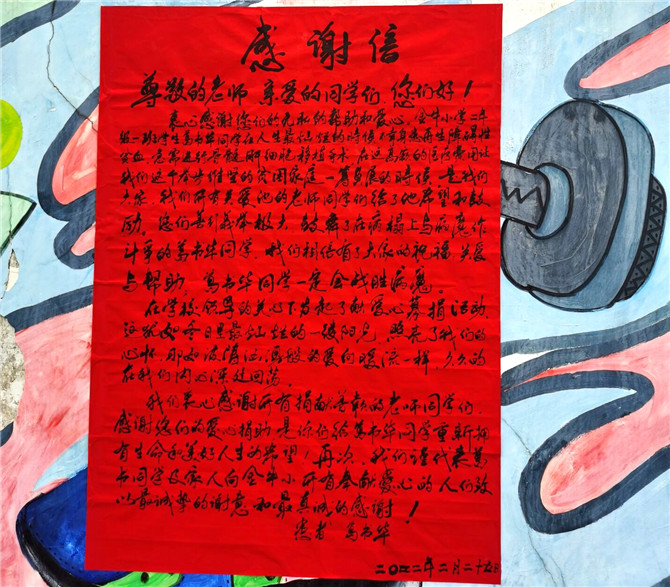 感谢信
尊敬的老师 亲爱的同学们，您们好！
衷心感谢您们的无私的帮助和爱心，金牛小学二年
级一班学生万书华同学在人生最低的时候！身患再生障碍性
贫血，急需进行骨髓肝细胞移植手术，在这高额的医疗费用让
我们这个本于的贫困家庭一筹莫展的时候，是我们
大家，我们所有关爱他的老师同学们给了他希望和鼓
励。您们善行义举极大 鼓舞了在病榻上与病魔作
斗争的万书华同学，我们相信有了大家的祝福，关爱
与帮助，万书华同学一定会战胜病魔。
在学校领导的关心下发起了献爱心募捐活动，
这犹如冬日里最灿烂的一缕阳光，照亮了我们的
心怀，那如波涛汹涌般的爱似暖流一样，久久的
在我们内心深处回荡。
我们衷心感谢所有捐献善款的老师同学们，
感谢您们的爱心捐助，是你们给万书华同学重新拥
有生命和美好人生的希望！再次，我们谨代表万
书同学及家人向金牛小所有奉献爱心的人们致
以最诚挚的谢意和最真诚的感谢！
患者 万书华
二〇二二年二月二十五